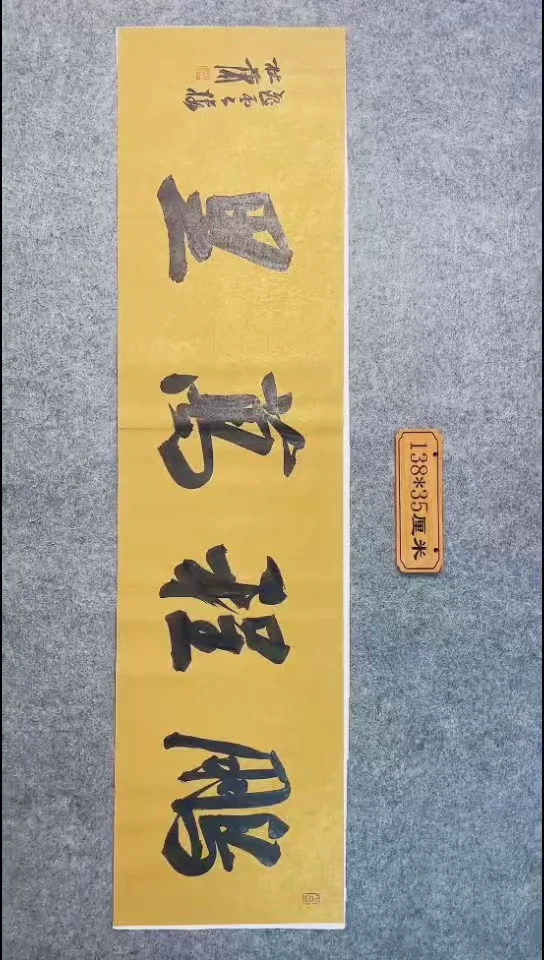 鵬程萬里
138*35厘米